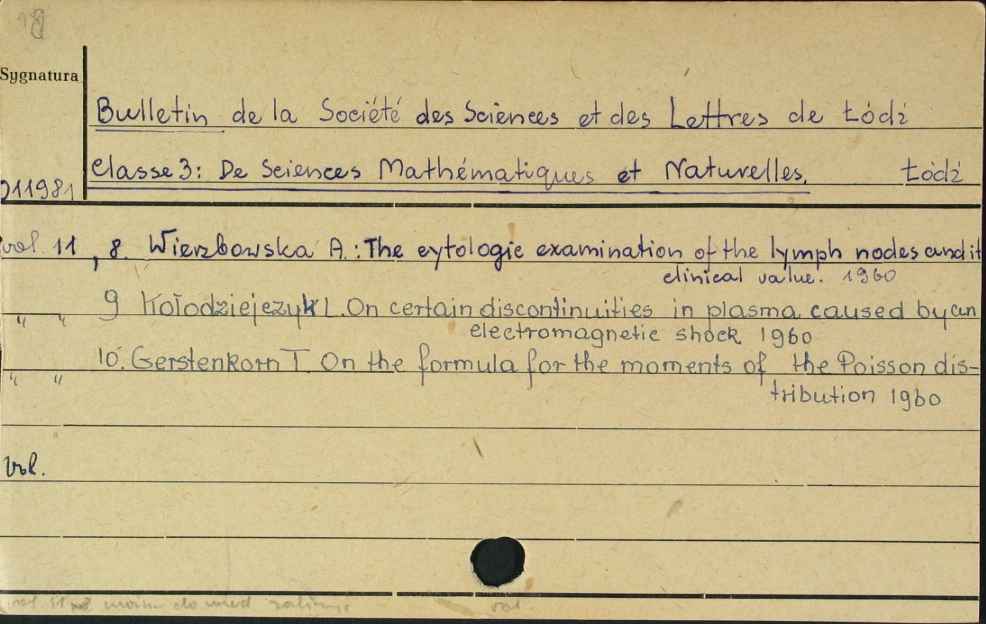 Sygnatura
Bulletin de la Société des Sciences et des Lettres de Łódź
Classe 3: De Sciences Mathématiques et Naturelles. Łódź
211981
vol. 11, 8. Wierzbowska A.: The cytologic examination of the lymph nodes and it
clinical value. 1960
" " 9 Kołodziejczyk L. On certain discontinuities in plasma caused by an
electromagnetic shock 1960
" " 10. Gerstenkorn T. On the formula for the moments of the Poisson dis-
tribution 1960
Vol.
vol.